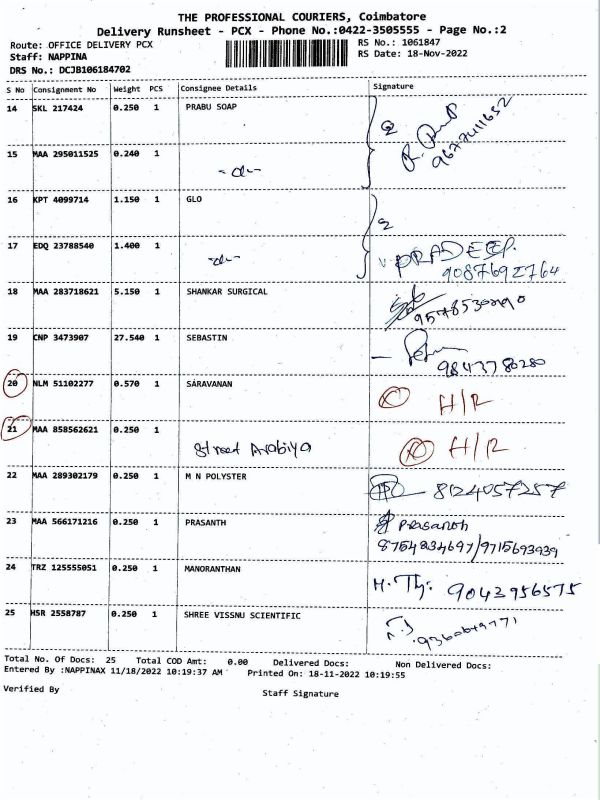 THE PROFESSIONAL COURIERS, Coimbatore
Delivery Runsheet - PCX - Phone No.:0422-3505555 - Page No.:2
Route: OFFICE DELIVERY PCX RS No.: 1061847
Staff: NAPPINA RS Date: 18-Nov-2022
DRS No.: DCJB106184702
S No Consignment No Weight PCS Consignee Details Signature
14 SKL 217424 0.250 1 PRABU SOAP
9677411652
15 MAA 295011525 0.240 1
16 KPT 4099714 1.150 1 GLO
17 EDQ 23788540 1.400 1 PRADEEP.
9087692764
18 MAA 283718621 5.150 1 SHANKAR SURGICAL
19 CNP 3473907 27.540 1 SEBASTIN
9843780280
20 NLM 51102277 0.570 1 SARAVANAN H/R
21 MAA 858562621 0.250 1 H/R
Street Arabiya
22 MAA 289302179 0.250 1 M N POLYSTER 8124057257
23 MAA 566171216 0.250 1 PRASANTH Prasanth
8754834697/9715693939
24 TRZ 125555051 0.250 1 MANORANTHAN
9043956575
25 HSR 2558787 0.250 1 SHREE VISSNU SCIENTIFIC
Total No. Of Docs: 25 Total COD Amt: 0.00 Delivered Docs: Non Delivered Docs:
Entered By :NAPPINAX 11/18/2022 10:19:37 AM Printed On: 18-11-2022 10:19:55
Verified By Staff Signature